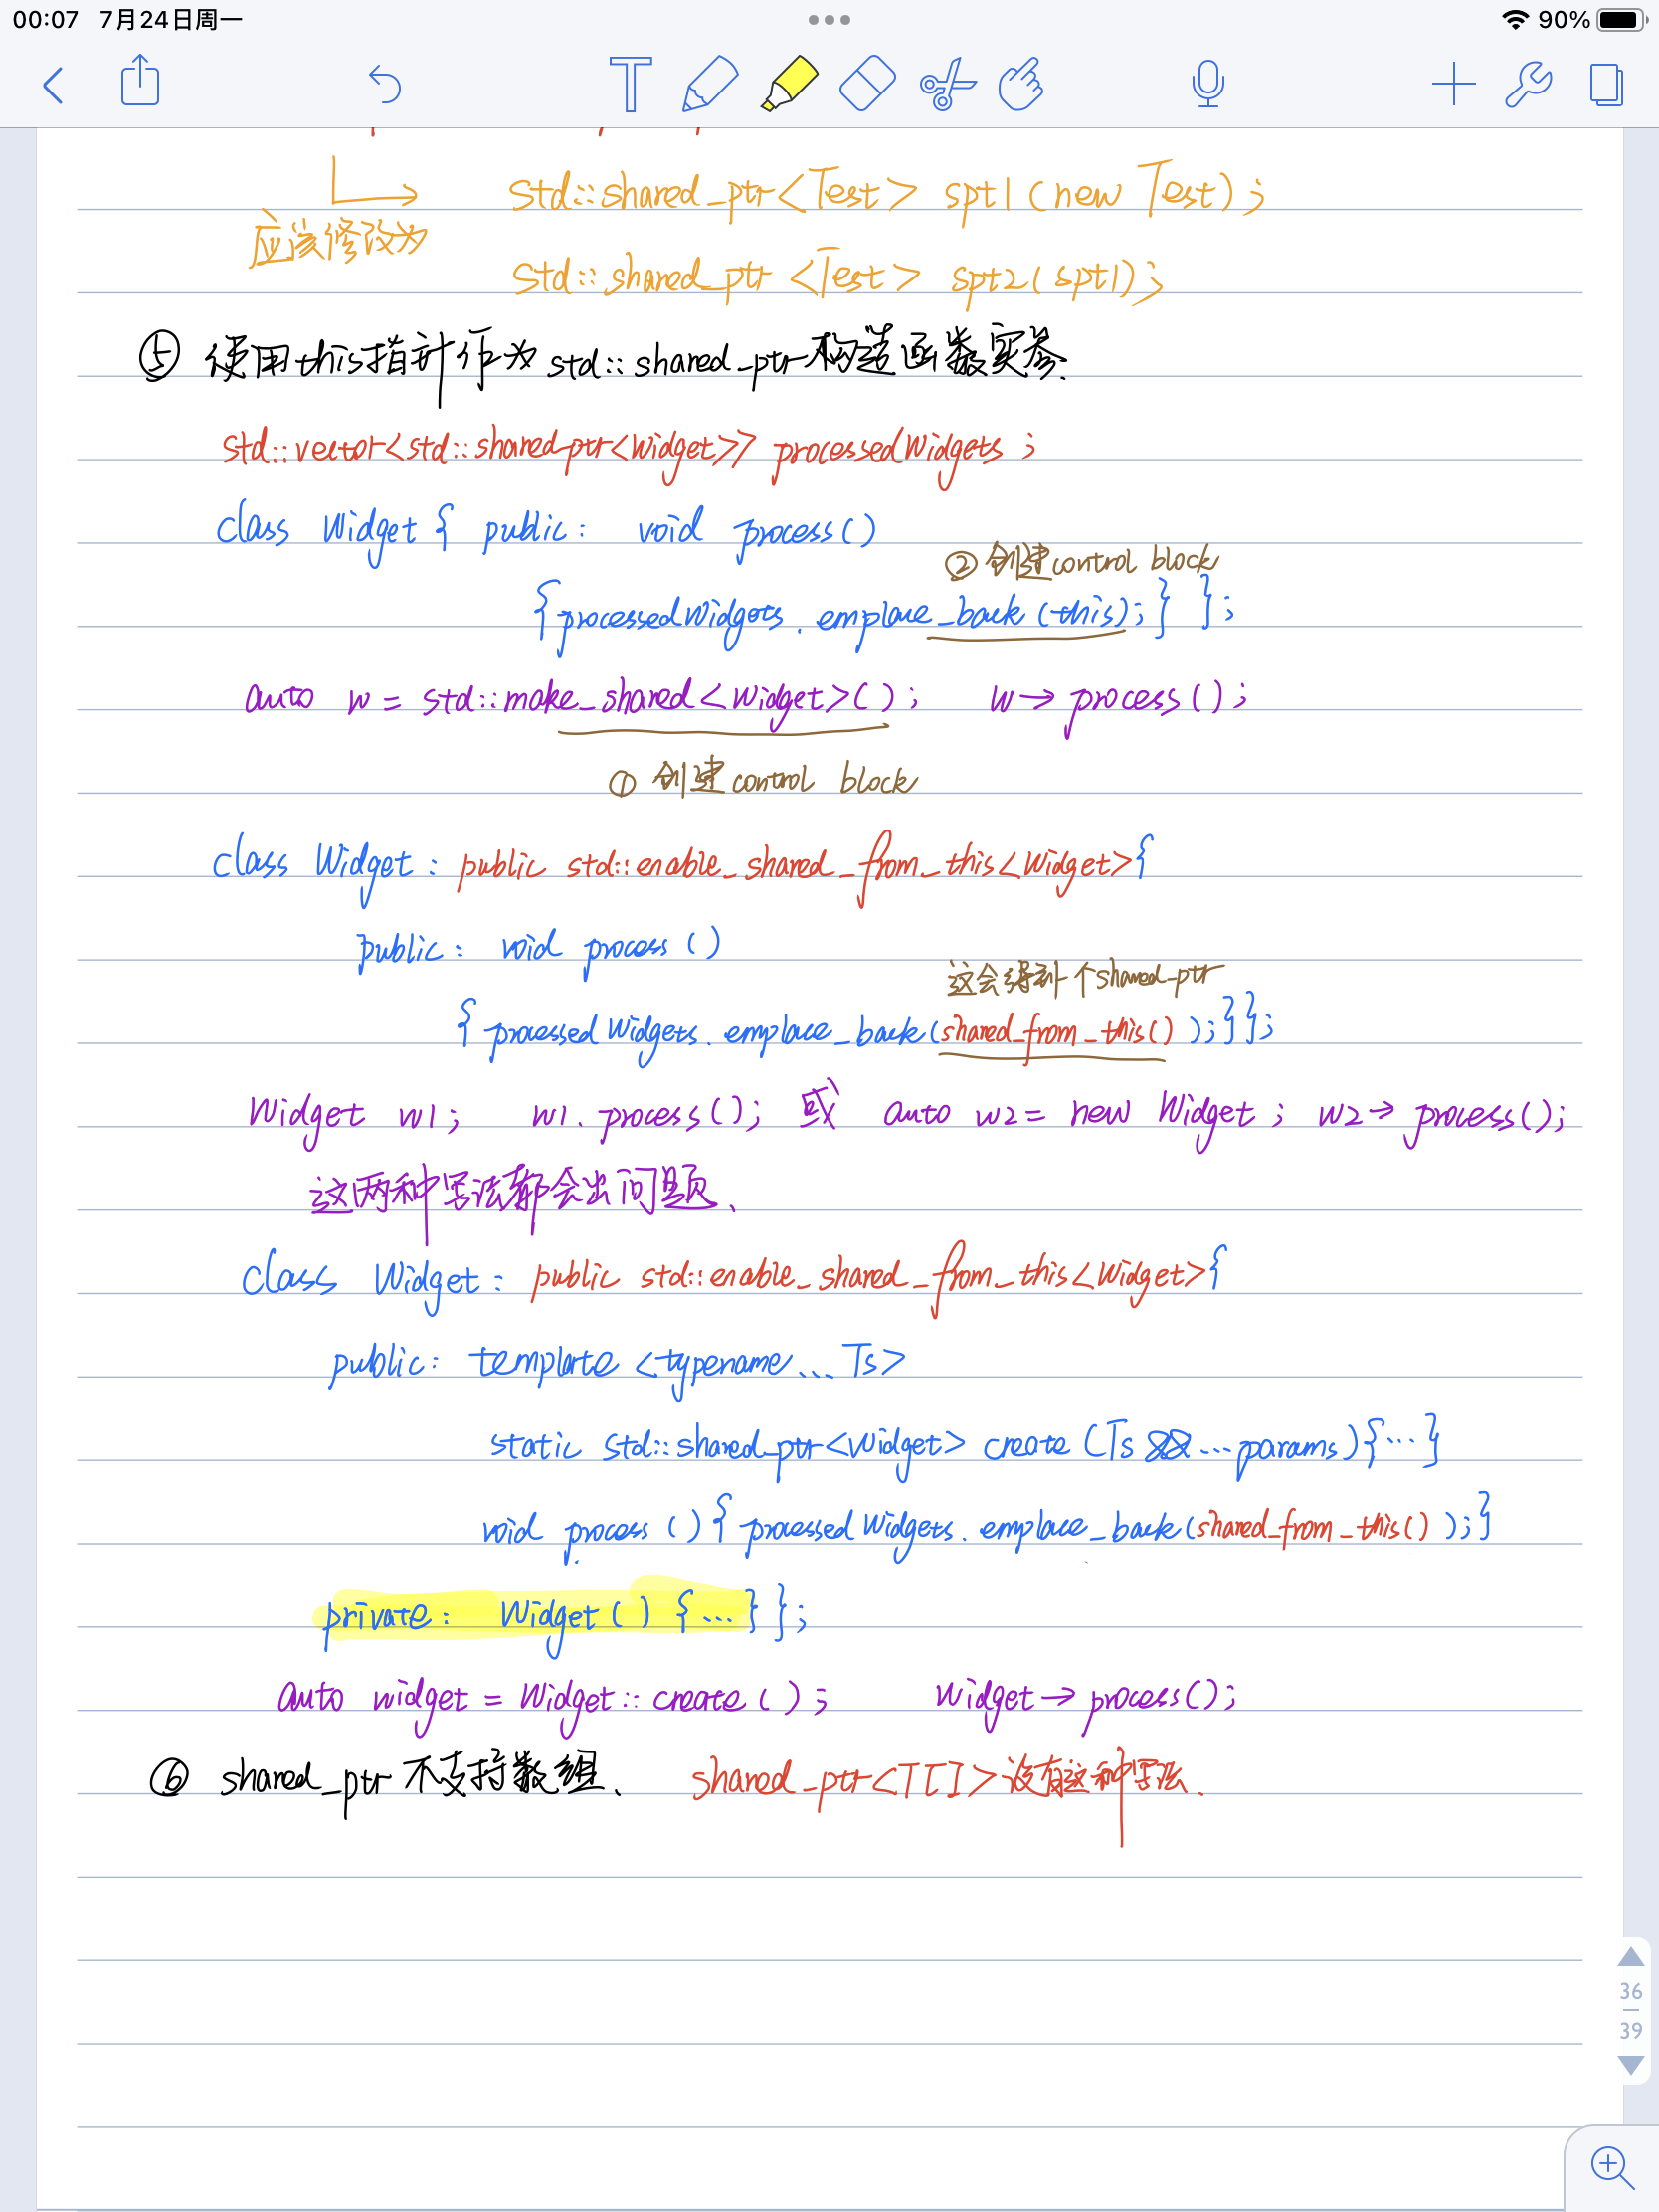 00:07 7月24日周一 90%
std::shared_ptr<Test> spt1(new Test);
应该修改为
std::shared_ptr<Test> spt2(spt1);
⑤ 使用this指针作为 std::shared_ptr构造函数实参.
std::vector<std::shared_ptr<Widget>> processedWidgets;
class Widget { public: void process()
② 创建control block
{processedWidgets.emplace_back(this);} };
auto w = std::make_shared<Widget>(); w→process();
① 创建control block
class Widget: public std::enable_shared_from_this<Widget>{
public: void process()
这会得到一个shared_ptr
{processedWidgets.emplace_back(shared_from_this());}};
Widget w1; w1.process(); 或 auto w2= new Widget; w2→process();
这两种写法都会出问题.
class Widget: public std::enable_shared_from_this<Widget>{
public: template <typename... Ts>
static std::shared_ptr<Widget> create(Ts &&...params){...}
void process(){processedWidgets.emplace_back(shared_from_this());}
private: Widget() {...} };
auto widget = Widget::create(); widget→process();
⑥ shared_ptr不支持数组. shared_ptr<T[]>没有这种写法.
36
39